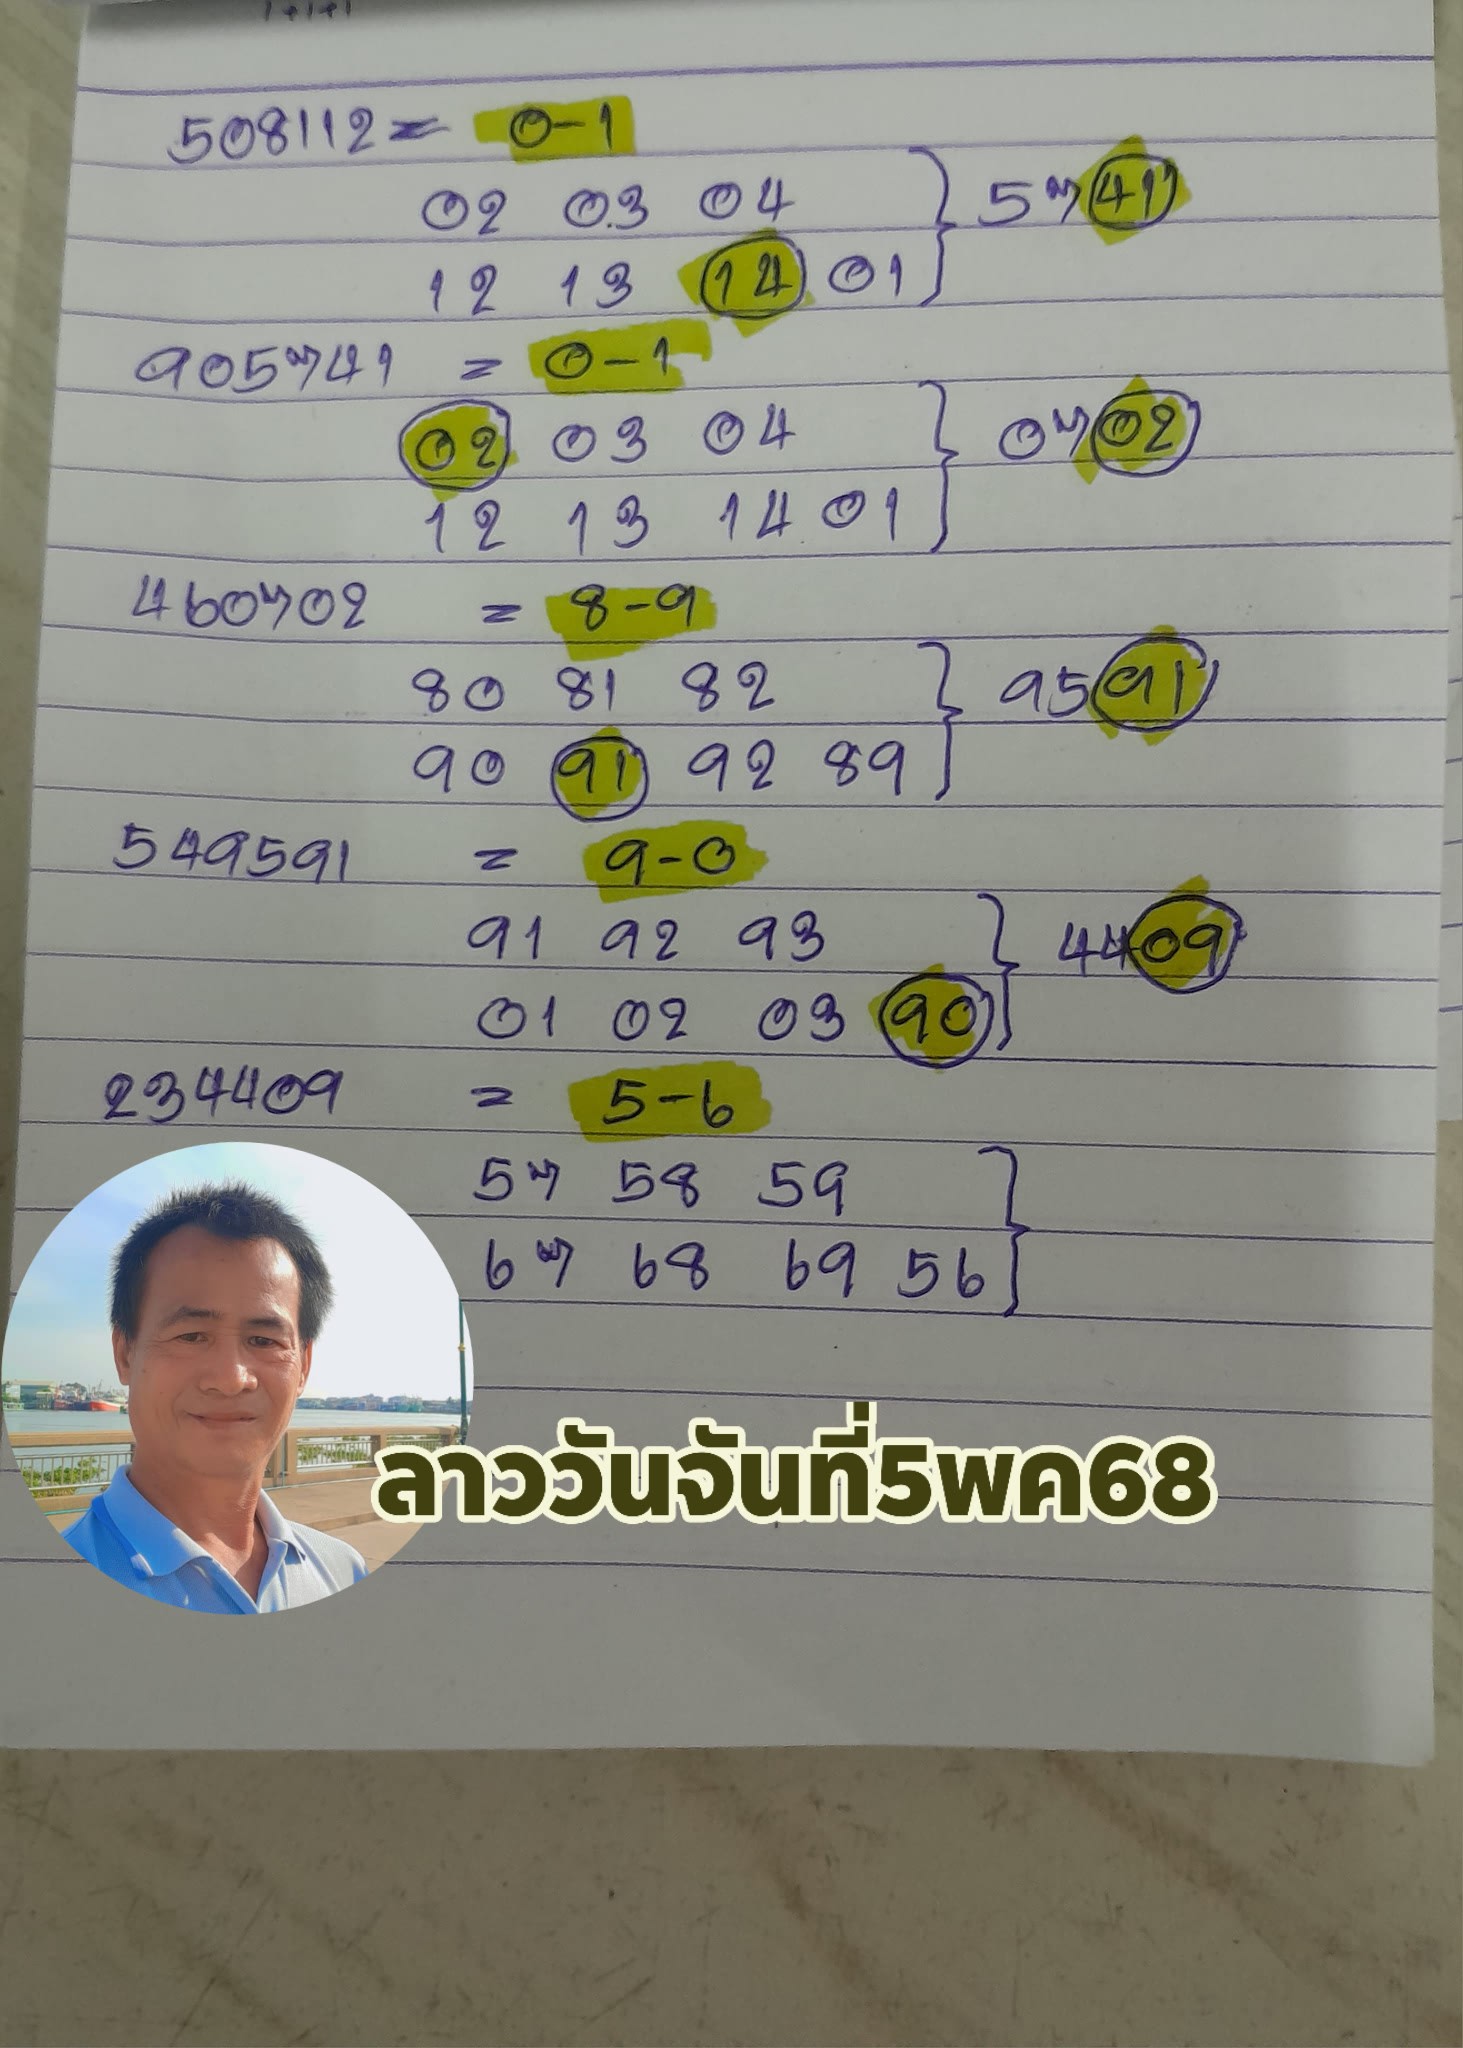 508112 = 0-1
02 03 04
5741
12 13 14 01
905741 = 0-1
02 03 04
0702
12 13 14 01
460702 = 8-9
80 81 82
9591
90 91 92 89
549591 = 9-0
91 92 93
4409
01 02 03 90
234409 = 5-6
57 58 59
67 68 69 56
ลาววันจันที่5พค68